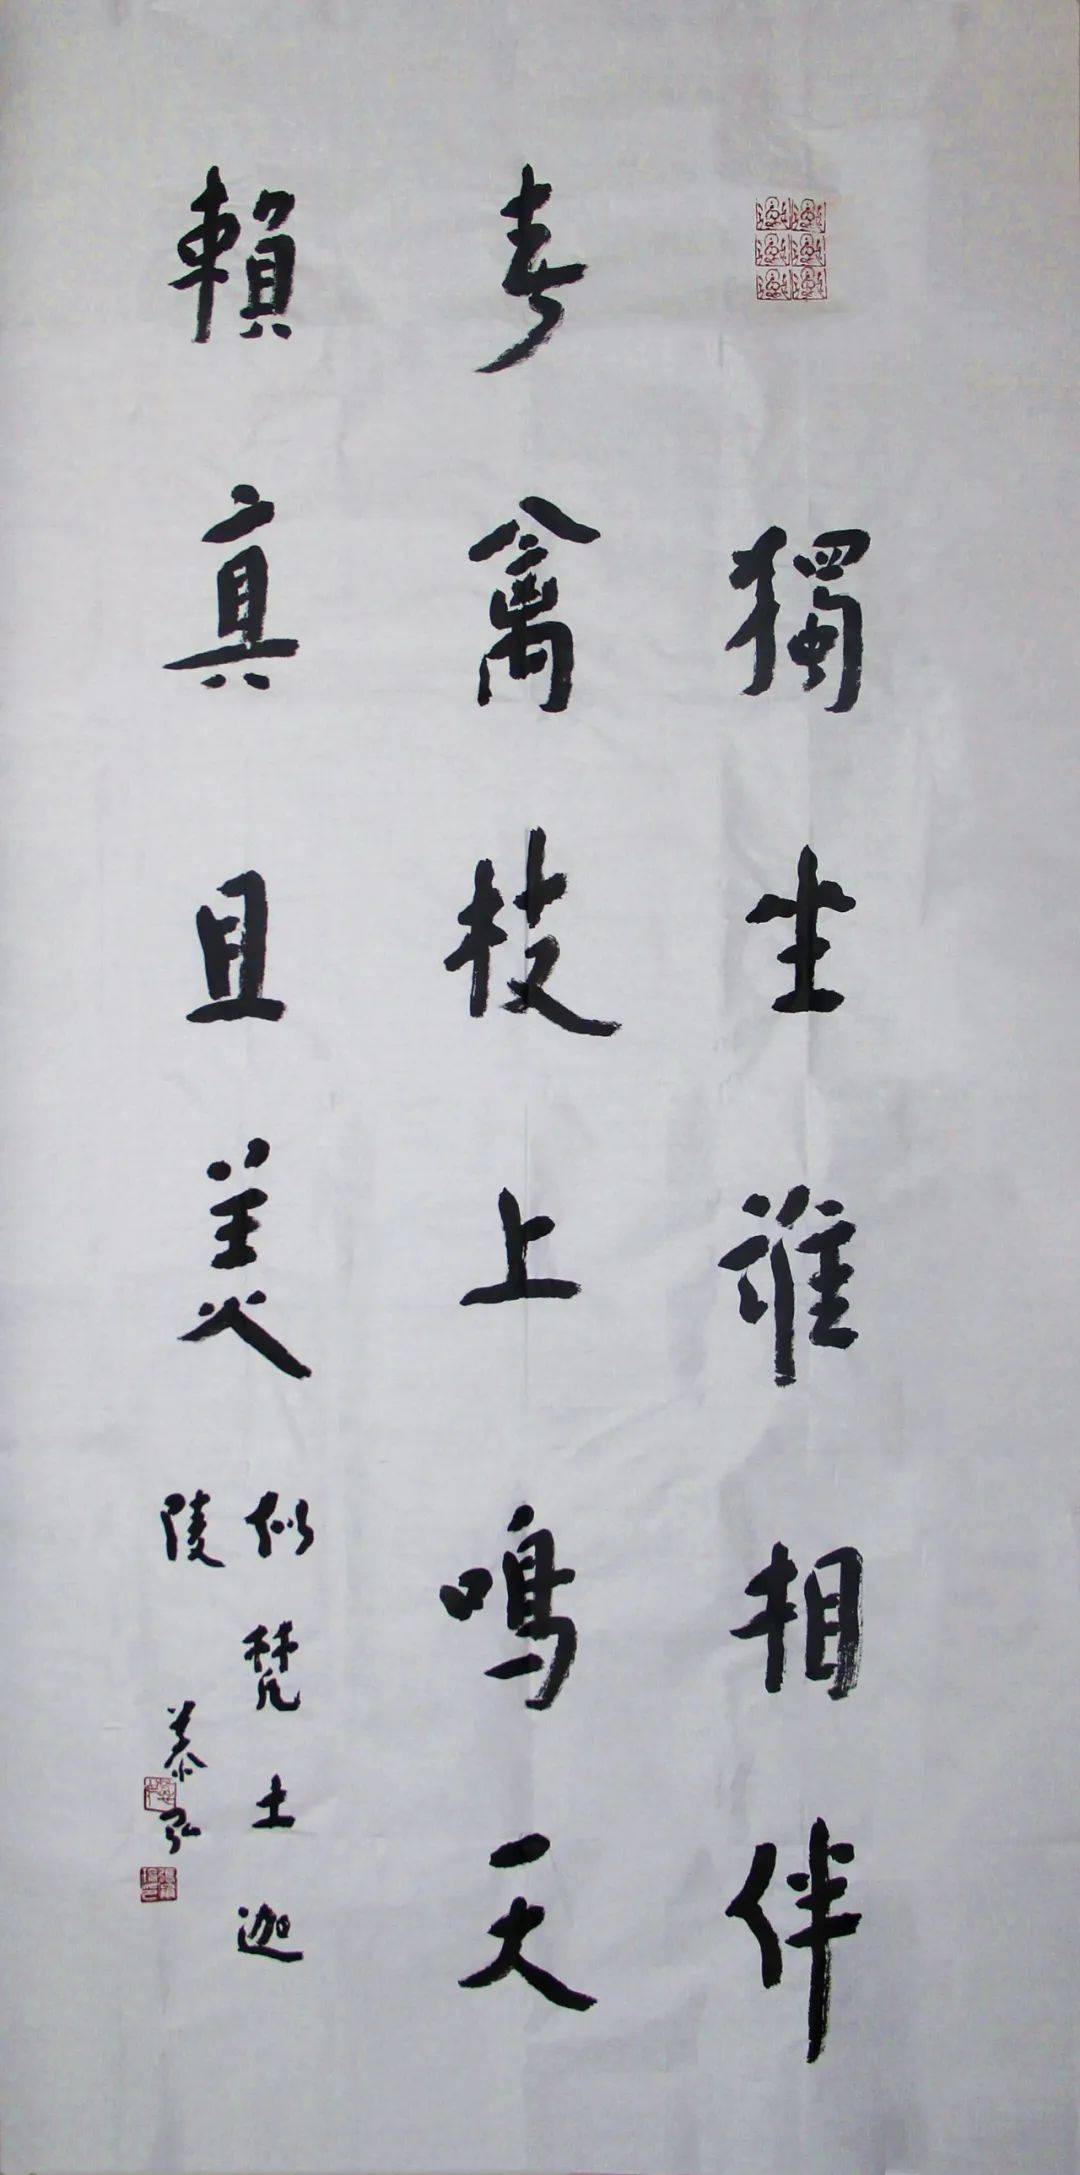 獨坐誰相伴
春禽枝上鳴天
賴真且美
似梵土迦
陵
弘